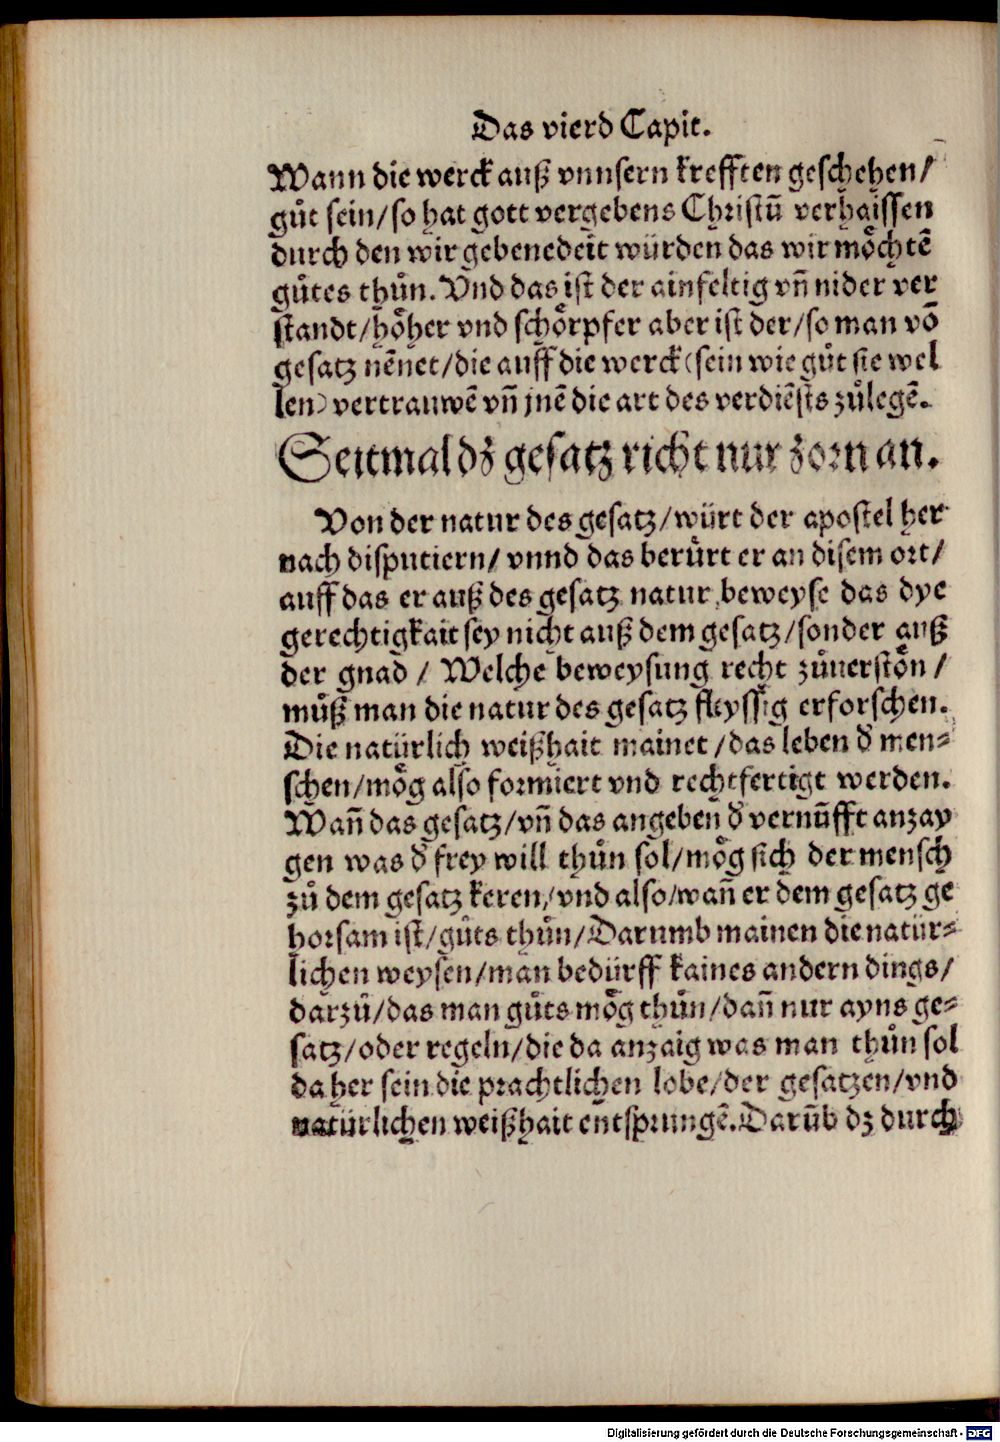 Das vierd Capit.
Wann die werck auß vnnsern krefften geschehen/
gůt sein/so hat gott vergebens Christū verhaissen
durch den wir gebenedeit würden das wir moͤchtē
gůtes thůn. Vnd das ist der ainfeltig vn̄ nider ver
standt/hoͤher vnd schoͤrpfer aber ist der/so man vō
gesatz nēnet/die auff die werck (sein wie gůt sie wel
len) vertrauwē vn̄ jnē die art des verdiēsts zůlegē.
Seitmal dz gesatz richt nur zorn an.
Von der natur des gesatz/würt der apostel her
nach disputiern/ vnnd das berürt er an disem ort/
auff das er auß des gesatz natur beweyse das dye
gerechtigkait sey nicht auß dem gesatz/sonder auß
der gnad / Welche beweysung recht zůuerstoͤn /
můß man die natur des gesatz fleyssig erforschen.
Die natürlich weißhait mainet /das leben d̄ men⸗
schen/moͤg also formiert vnd rechtfertigt werden.
Wan̄ das gesatz/vn̄ das angeben d̄ vernūfft anzay
gen was d̄ frey will thůn sol/moͤg sich der mensch
zů dem gesatz keren/vnd also/wan̄ er dem gesatz ge
horsam ist/gůts thůn/Darumb mainen die natür⸗
lichen weysen/man bedürff kaines andern dings/
darzů/das man gůts moͤg thůn/dan̄ nur ayns ge⸗
satz/oder regeln/die da anzaig was man thůn sol
da her sein die prachtlichen lobe/der gesatzen/vnd
natürlichen weißhait entsprungē.Darūb dz durch
Digitalisierung gefördert durch die Deutsche Forschungsgemeinschaft - DFG